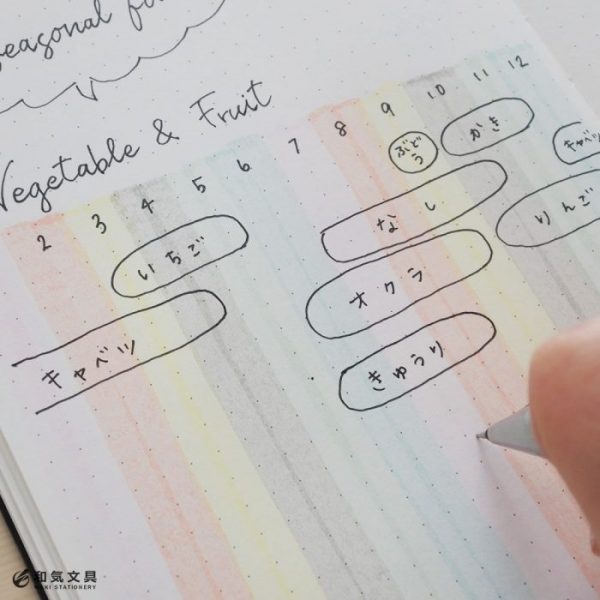 seasonal fo
Vegetable & Fruit
2 3 4 5 6 7 8 9 10 11 12
ぶどう
かき
キャベツ
なし
りんご
いちご
オクラ
キャベツ
きゅうり
和気文具
WAKI STATIONERY